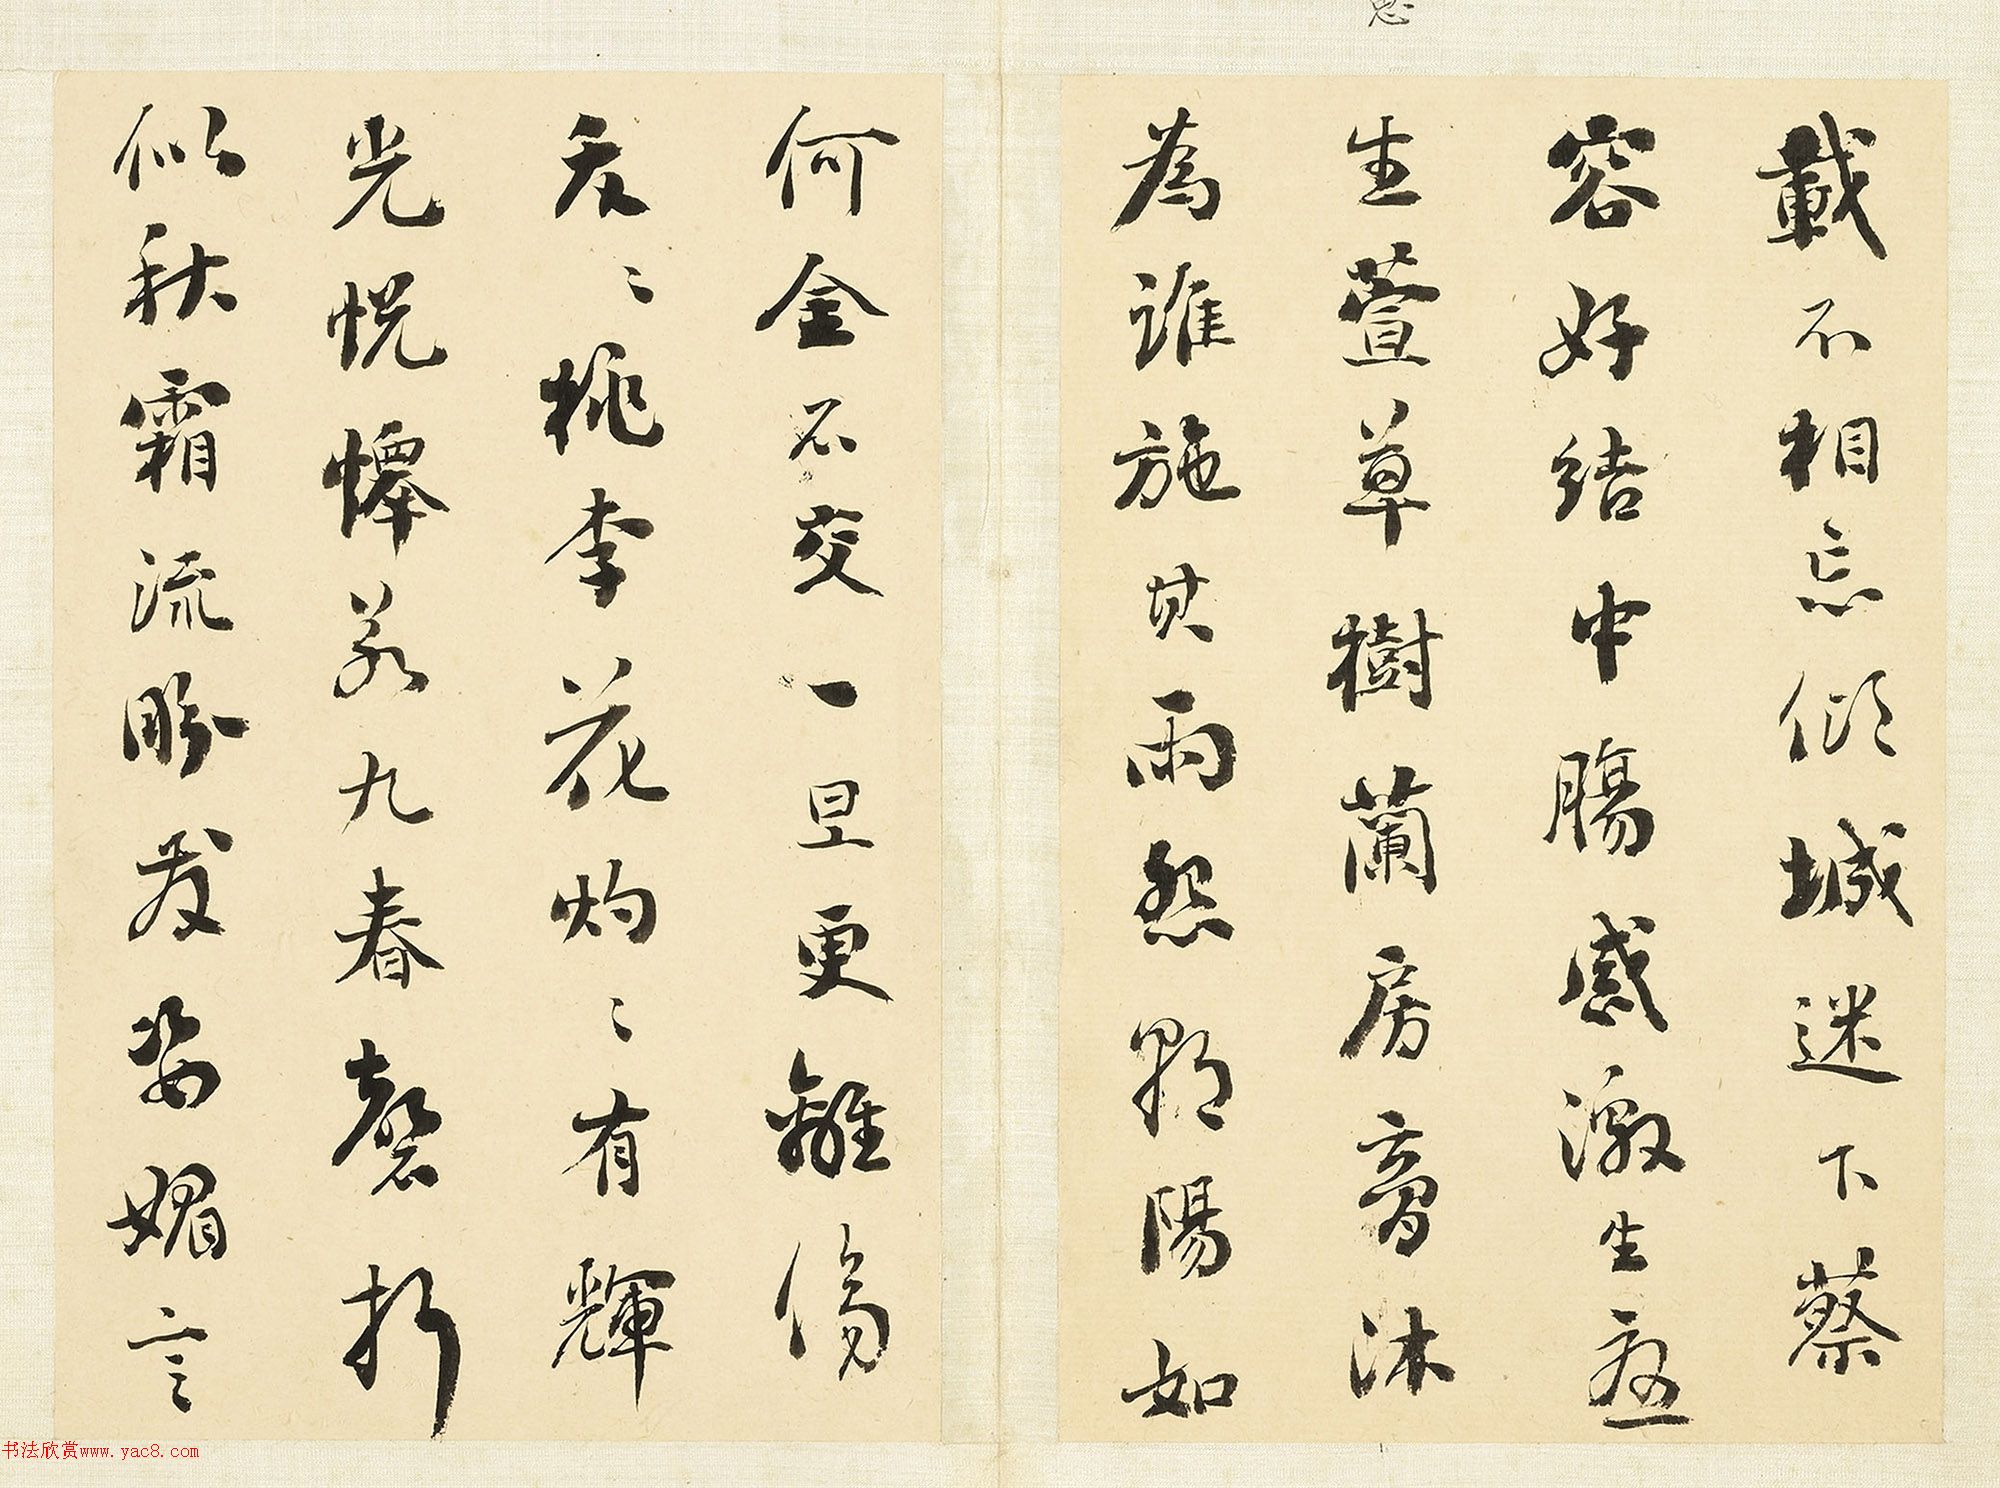 思
載不相忘傾城迷下蔡
容好結中腸感激生憂
生萱草樹蘭房膏沐
為誰施其雨怨朝陽如
何金石交一旦更離傷
夭〻桃李花灼〻有輝
光悅懌若九春磬折
似秋霜流盼發姿媚言
书法欣赏www.yac8.com